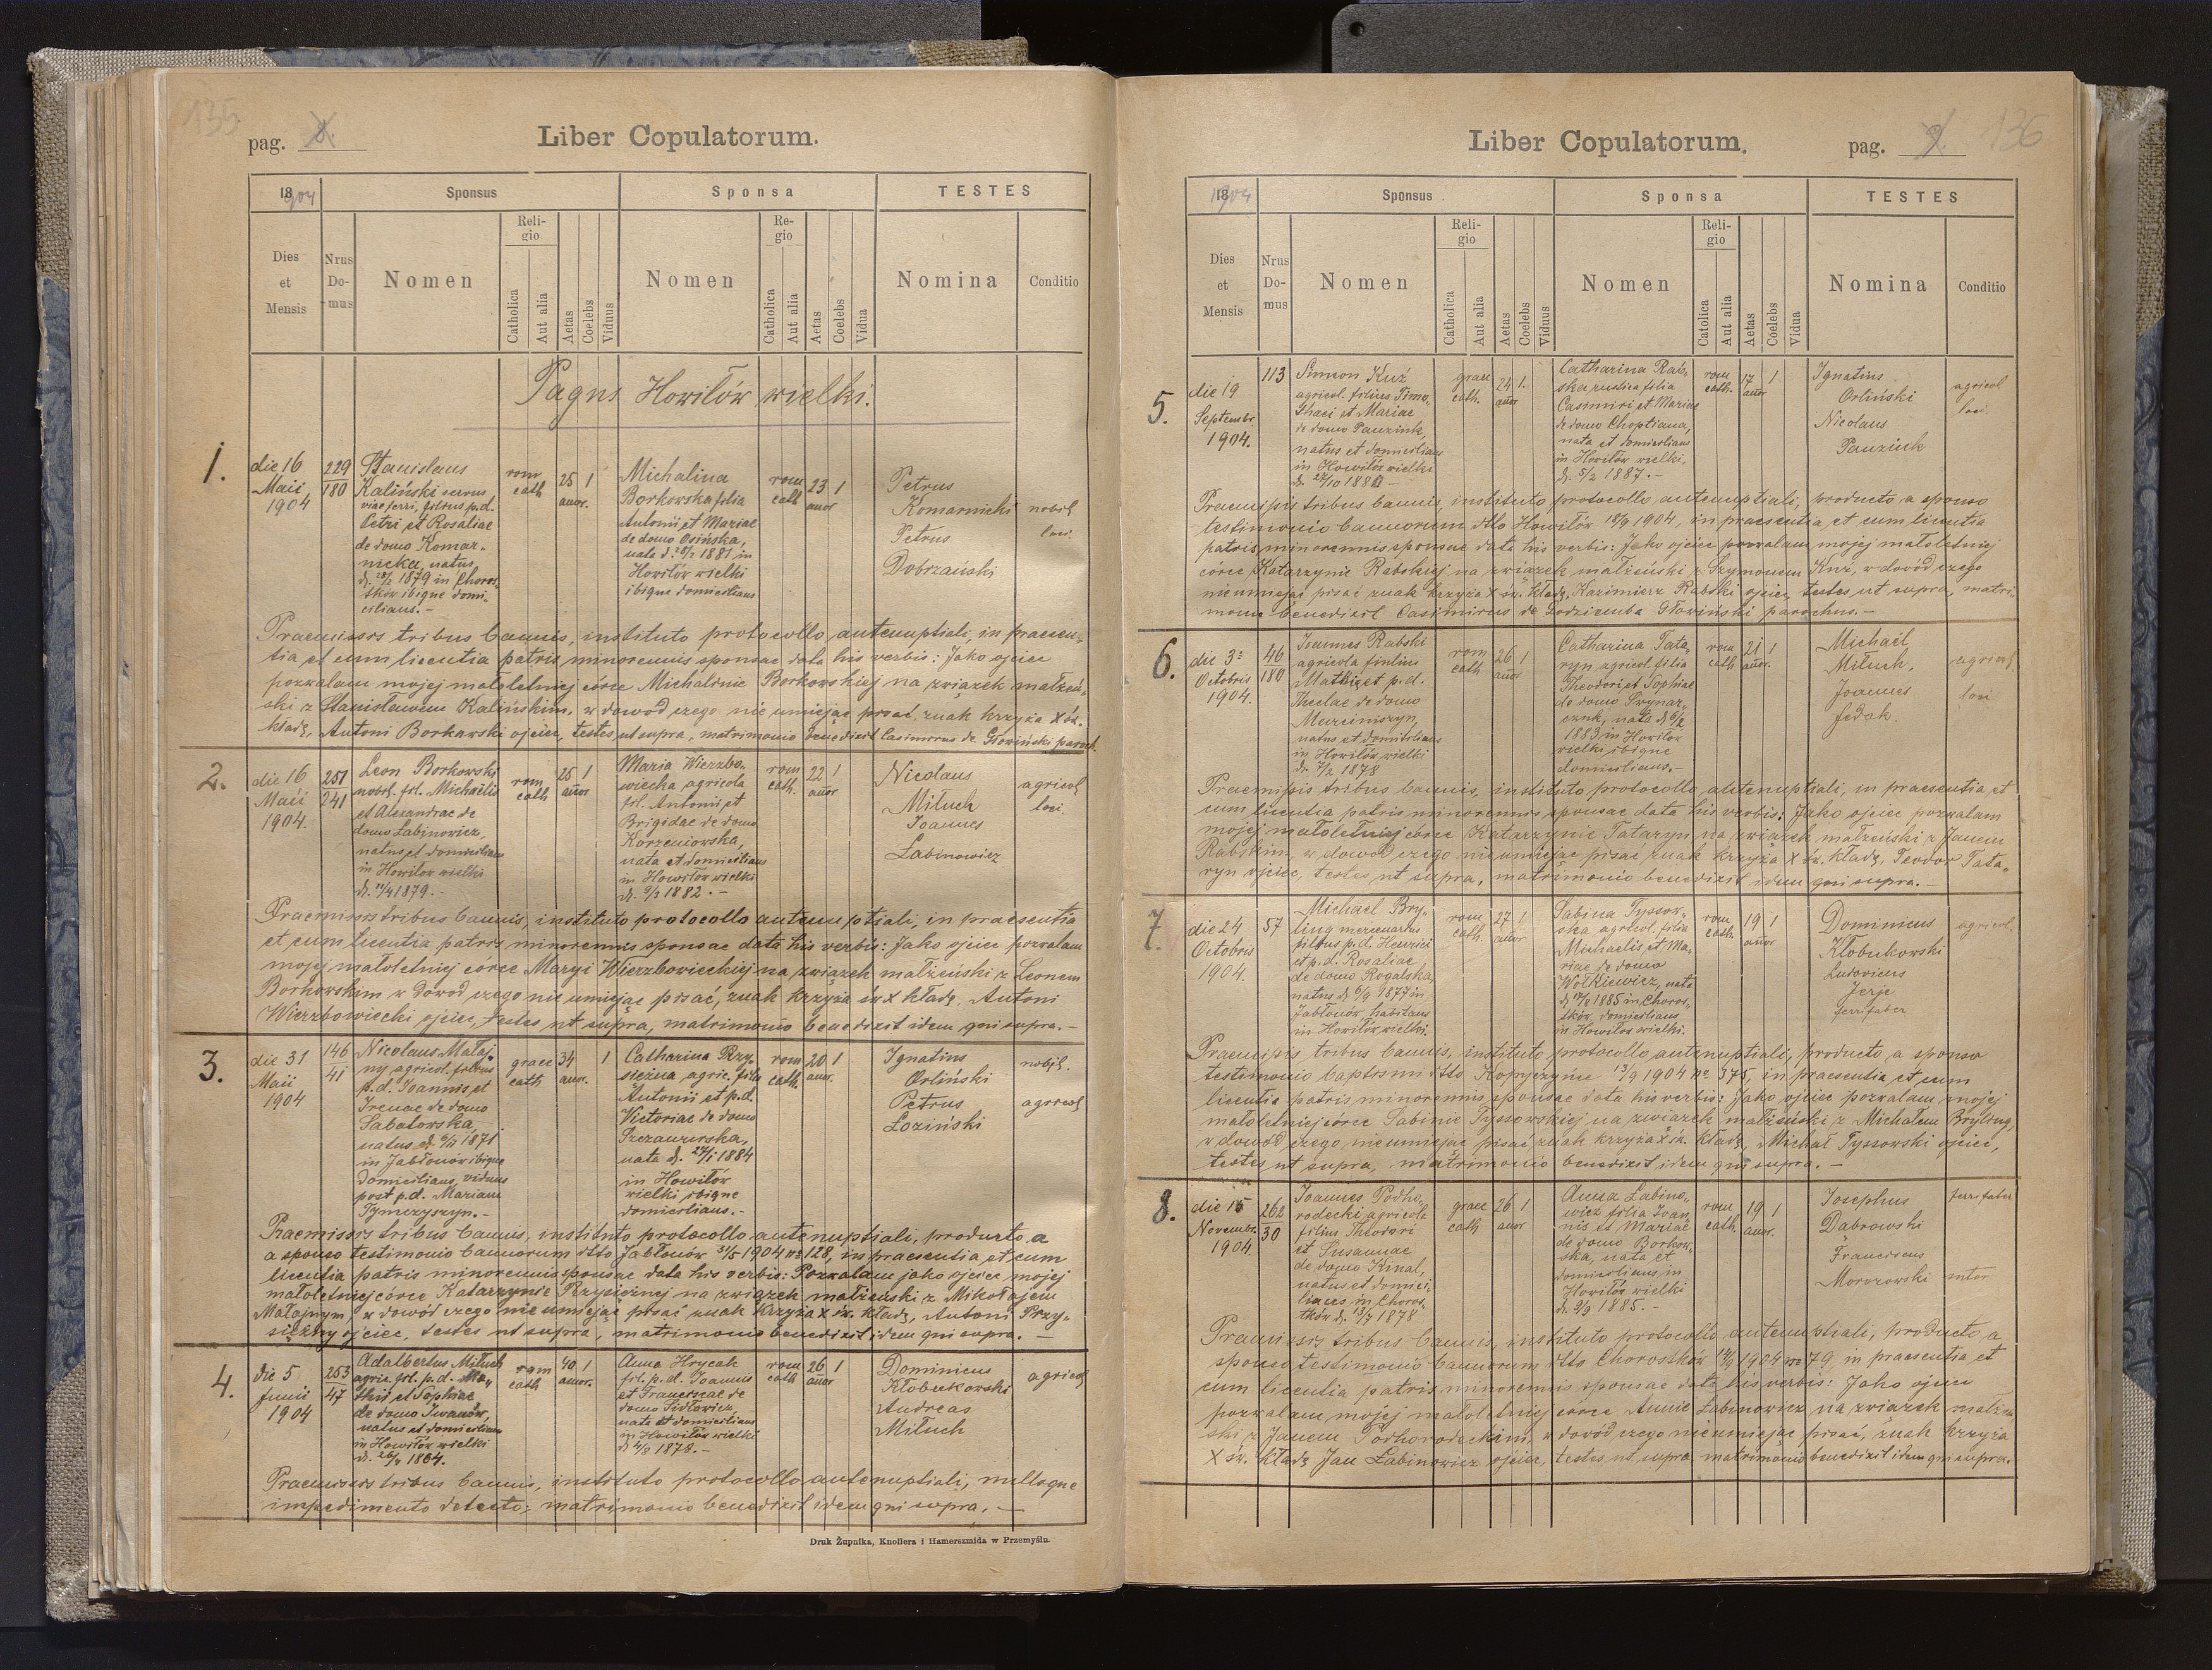 135
pag. 8.
Liber Copulatorum.
1904
Sponsus
Sponsa
TESTES
Dies et Mensis
Nrus Domus
Nomen
Religio
Catholica
Aut alia
Aetas
Coelebs
Viduus
Nomen
Religio
Catholica
Aut alia
Aetas
Coelebs
Vidua
Nomina
Conditio
Pagus Howiłów wielki.
1.
die 16
Maii
1904
229
180
Stanislaus
Kaliński servus
viae ferri, filius p.d.
Petri et Rosaliae
de domo Komar-
nicka, natus
in Choros-
tków ibique domi-
cilians.-
rom
cath
25
anor.
1
Michalina
Borkowska filia
Antonii et Mariae
de domo Osińska,
1881 in
Howiłów wielki
ibique domicilians
rom
cath
23
anor
1
Petrus
Komarnicki
Petrus
Dobrzański
nobil
loci
Praemissis tribus bannis, instituto protocollo antenuptiali, in praesen-
tia et cum licentia patris minorennis sponsae data his verbis: Jako ojciec
pozwalam mojej małoletniej córce Michalinie Borkowskiej na związek małżeń-
ski z Stanisławem Kalińskim, w dowód czego nie umiejąc pisać, znak krzyża X św.
kładę, Antoni Borkowski ojciec, testes ut supra, matrimonio benedixit Casimirus de Głowiński paroch.
2.
die 16
Maii
1904.
251
241
Leon Borkowski
nobil. fil. Michaelis
et Alexandrae de
domo Łabinowicz,
natus et domicilians
in Howiłów wielki
1879.-
rom
cath
25
anor
1
Maria Wierzbo-
wiecka agricola
fil. Antonii et
Brigidae de domo
Korzeniowska,
nata et domicilians
in Howiłów wielki
d. 9/3 1882.-
rom
cath.
22
anor
1
Nicolaus
Miłuch
Joannes
Łabinowicz
agricol
loci
Praemissis tribus bannis, instituto protocollo antenuptiali, in praesentia
et cum licentia patris minorennis sponsae data his verbis: Jako ojciec pozwalam
mojej małoletniej córce Maryi Wierzbowieckiej na związek małżeński z Leonem
Borkowskim w dowód czego nie umiejąc pisać, znak krzyża św X kładę, Antoni
Wierzbowiecki ojciec, testes ut supra, matrimonio benedixit idem qui supra.-
3.
die 31
Maii
1904
146
41
Nicolaus Małaj-
ny agricol. filius
p.d. Joannis et
Irenae de domo
Sabatowska,
natus 1871
in Jabłonów ibique
domicilians, viduus
post p.d. Mariam
Tymczyszyn.-
graec
cath
34
anor.
1
Catharina Przy-
siężna agric. filia
Antonii et p.d.
Victoriae de domo
nata d. 27/1 1884
in Howiłów
wielki ibique
domicilians.-
rom
cath.
20
anor.
1
Ignatius
Orliński
Petrus
Łoziński
nobil.
agricol
Praemissis tribus bannis, instituto protocollo antenuptiali, producto a
a sponso testimonio bannorum dtto Jabłonów 31/5 1904 nro 128, in praesentia et cum
licentia patris minorennis sponsae data his verbis: Pozwalam jako ojciec mojej
małoletniej córce Katarzynie Przysiężnej na związek małżeński z Mikołajem
Małajnym, w dowód czego nie umiejąc pisać znak krzyża X św. kładę, Antoni Przy-
siężny ojciec, testes ut supra, matrimonio benedixit idem qui supra.-
4.
die 5
Junii
1904
253
47
Adalbertus Miłuch
agric. fil. p.d. Ma-
thiae et Sophiae
de domo Iwanów,
natus et domicilians
in Howiłów wielki
1864.
rom
cath
40
anor.
1
Anna Hrycak
fil. p.d. Joannis
et Franciscae de
domo Sidłowicz,
nata et domicilians
in Howiłów wielki
1878.-
rom
cath
26
anor
1
Dominicus
Kłobukowski
Andreas
Miłuch
agricol
Praemissis tribus bannis, instituto protocollo antenuptiali, nulloque
impedimento detecto; matrimonio benedixit idem qui supra.-
Druk Żupnika, Knollera i Hamerszmida w Przemyślu.
Liber Copulatorum.
pag. 9.
136
1904
Sponsus
Sponsa
TESTES
Dies et Mensis
Nrus Domus
Nomen
Religio
Catholica
Aut alia
Aetas
Coelebs
Viduus
Nomen
Religio
Catolica
Aut alia
Aetas
Coelebs
Vidua
Nomina
Conditio
5.
die 19
Septembr.
1904.
113
Simeon Kuź
agricol. filius Timo-
thaei et Mariae
de domo Pauzink,
natus et domicilians
in Howiłów wielki
graec
cath.
24
anor
1.
Catharina Rab-
ska rustica filia
Casimiri et Mariae
de domo Choptiana,
nata et domicilians
in Howiłów wielki,
d. 5/2 1887.-
rom
cath.
17
anor
1
Ignatius
Orliński
Nicolaus
Pauzink
agricol
loci
Praemissis tribus bannis, instituto protocollo antenuptiali, producto a sponso
testimonio bannorum dtto Howiłów 18/9 1904, in praesentia et cum licentia
patris minorennis sponsae data his verbis: Jako ojciec pozwalam mojej małoletniej
córce Katarzynie Rabskiej na związek małżeński z Szymonem Kuź, w dowód czego
nie umiejąc pisać znak krzyża X św. kładę, Kazimierz Rabski ojciec, testes ut supra, matri-
monio benedixit Casimirus de Godziemba Głowiński parochus.-
6.
die 3
Octobris
1904.
46
180
Joannes Rabski
agricola filius
Mathiae et p.d.
Theclae de domo
Marciniszyn,
natus et domicilians
in Howiłów wielki
d. 7/2 1878
rom
cath
26
anor
1
Catharina Tata-
ryn agricol. filia
Theodori et Sophiae
de domo
nata d. 6/2
1883 in Howiłów
wielki ibique
domicilians.-
rom
cath
21
anor.
1
Michael
Miłuch,
Joannes
Fedak.
agricol
loci
Praemissis tribus bannis, instituto protocollo antenuptiali, in praesentia et
cum licentia patris minorennis sponsae data his verbis: Jako ojciec pozwalam
mojej małoletniej córce Katarzynie Tataryn na związek małżeński z Janem
Rabskim, w dowód czego nie umiejąc pisać znak krzyża X św. kładę, Teodor Tata-
ryn ojciec, testes ut supra, matrimonio benedixit idem qui supra.-
7.
die 24
Octobris
1904.
57
Michael Bry-
ling mercenarius
filius p.d. Henrici
et p.d. Rosaliae
de domo Rogalska,
natus d. 6/9 1877 in
Jabłonów, habitans
in Howiłów wielki.
rom
cath.
27
anor
1
Sabina Tyssow-
ska agricol. filia
Michaelis et Ma-
riae de domo
Wołkiewicz, nata
1885 in Choros-
tków, domicilians
in Howiłów wielki.
rom
cath.
19
anor
1
Dominicus
Kłobukowski
Ludovicus
Jerje
ferrifaber
agricol.
Praemissis tribus bannis, instituto protocollo antenuptiali, producto a sponso
testimonio baptismi dtto Kopyczyńce 13/9 1904 nro 375, in praesentia et cum
licentia patris minorennis sponsae data his verbis: Jako ojciec pozwalam mojej
małoletniej córce Sabinie Tyssowskiej na związek małżeński z Michałem Bryling,
w dowód czego nie umiejąc pisać znak krzyża X św. kładę, Michał Tyssowski ojciec,
testes ut supra, matrimonio benedixit idem qui supra.-
8.
die 15
Novembr.
1904.
262
30
Joannes Podho-
rodecki agricola
filius Theodori
et Susannae
de domo Kinal,
natus et domici-
lians in Choros-
tków d. 13/7 1878
graec
cath
26
anor
1
Anna Łabino-
wicz filia Joan-
nis et Mariae
de domo Borkow-
ska, nata et
domicilians in
Howiłów wielki
d. 9/9 1885.-
rom
cath.
19
anor.
1
Josephus
Dąbrowski
Franciscus
Morozowski
ferrifaber
sutor
Praemissis tribus bannis, instituto protocollo antenuptiali, producto a
sponso testimonio bannorum dtto Chorostków 1904 nro 79, in praesentia et
cum licentia patris minorennis sponsae data his verbis: Jako ojciec
pozwalam mojej małoletniej córce Annie Łabinowicz na związek małżeń-
ski z Janem Podhorodeckim, w dowód czego nie umiejąc pisać, znak krzyża
X św. kładę Jan Łabinowicz ojciec, testes ut supra matrimonio benedixit idem qui supra.